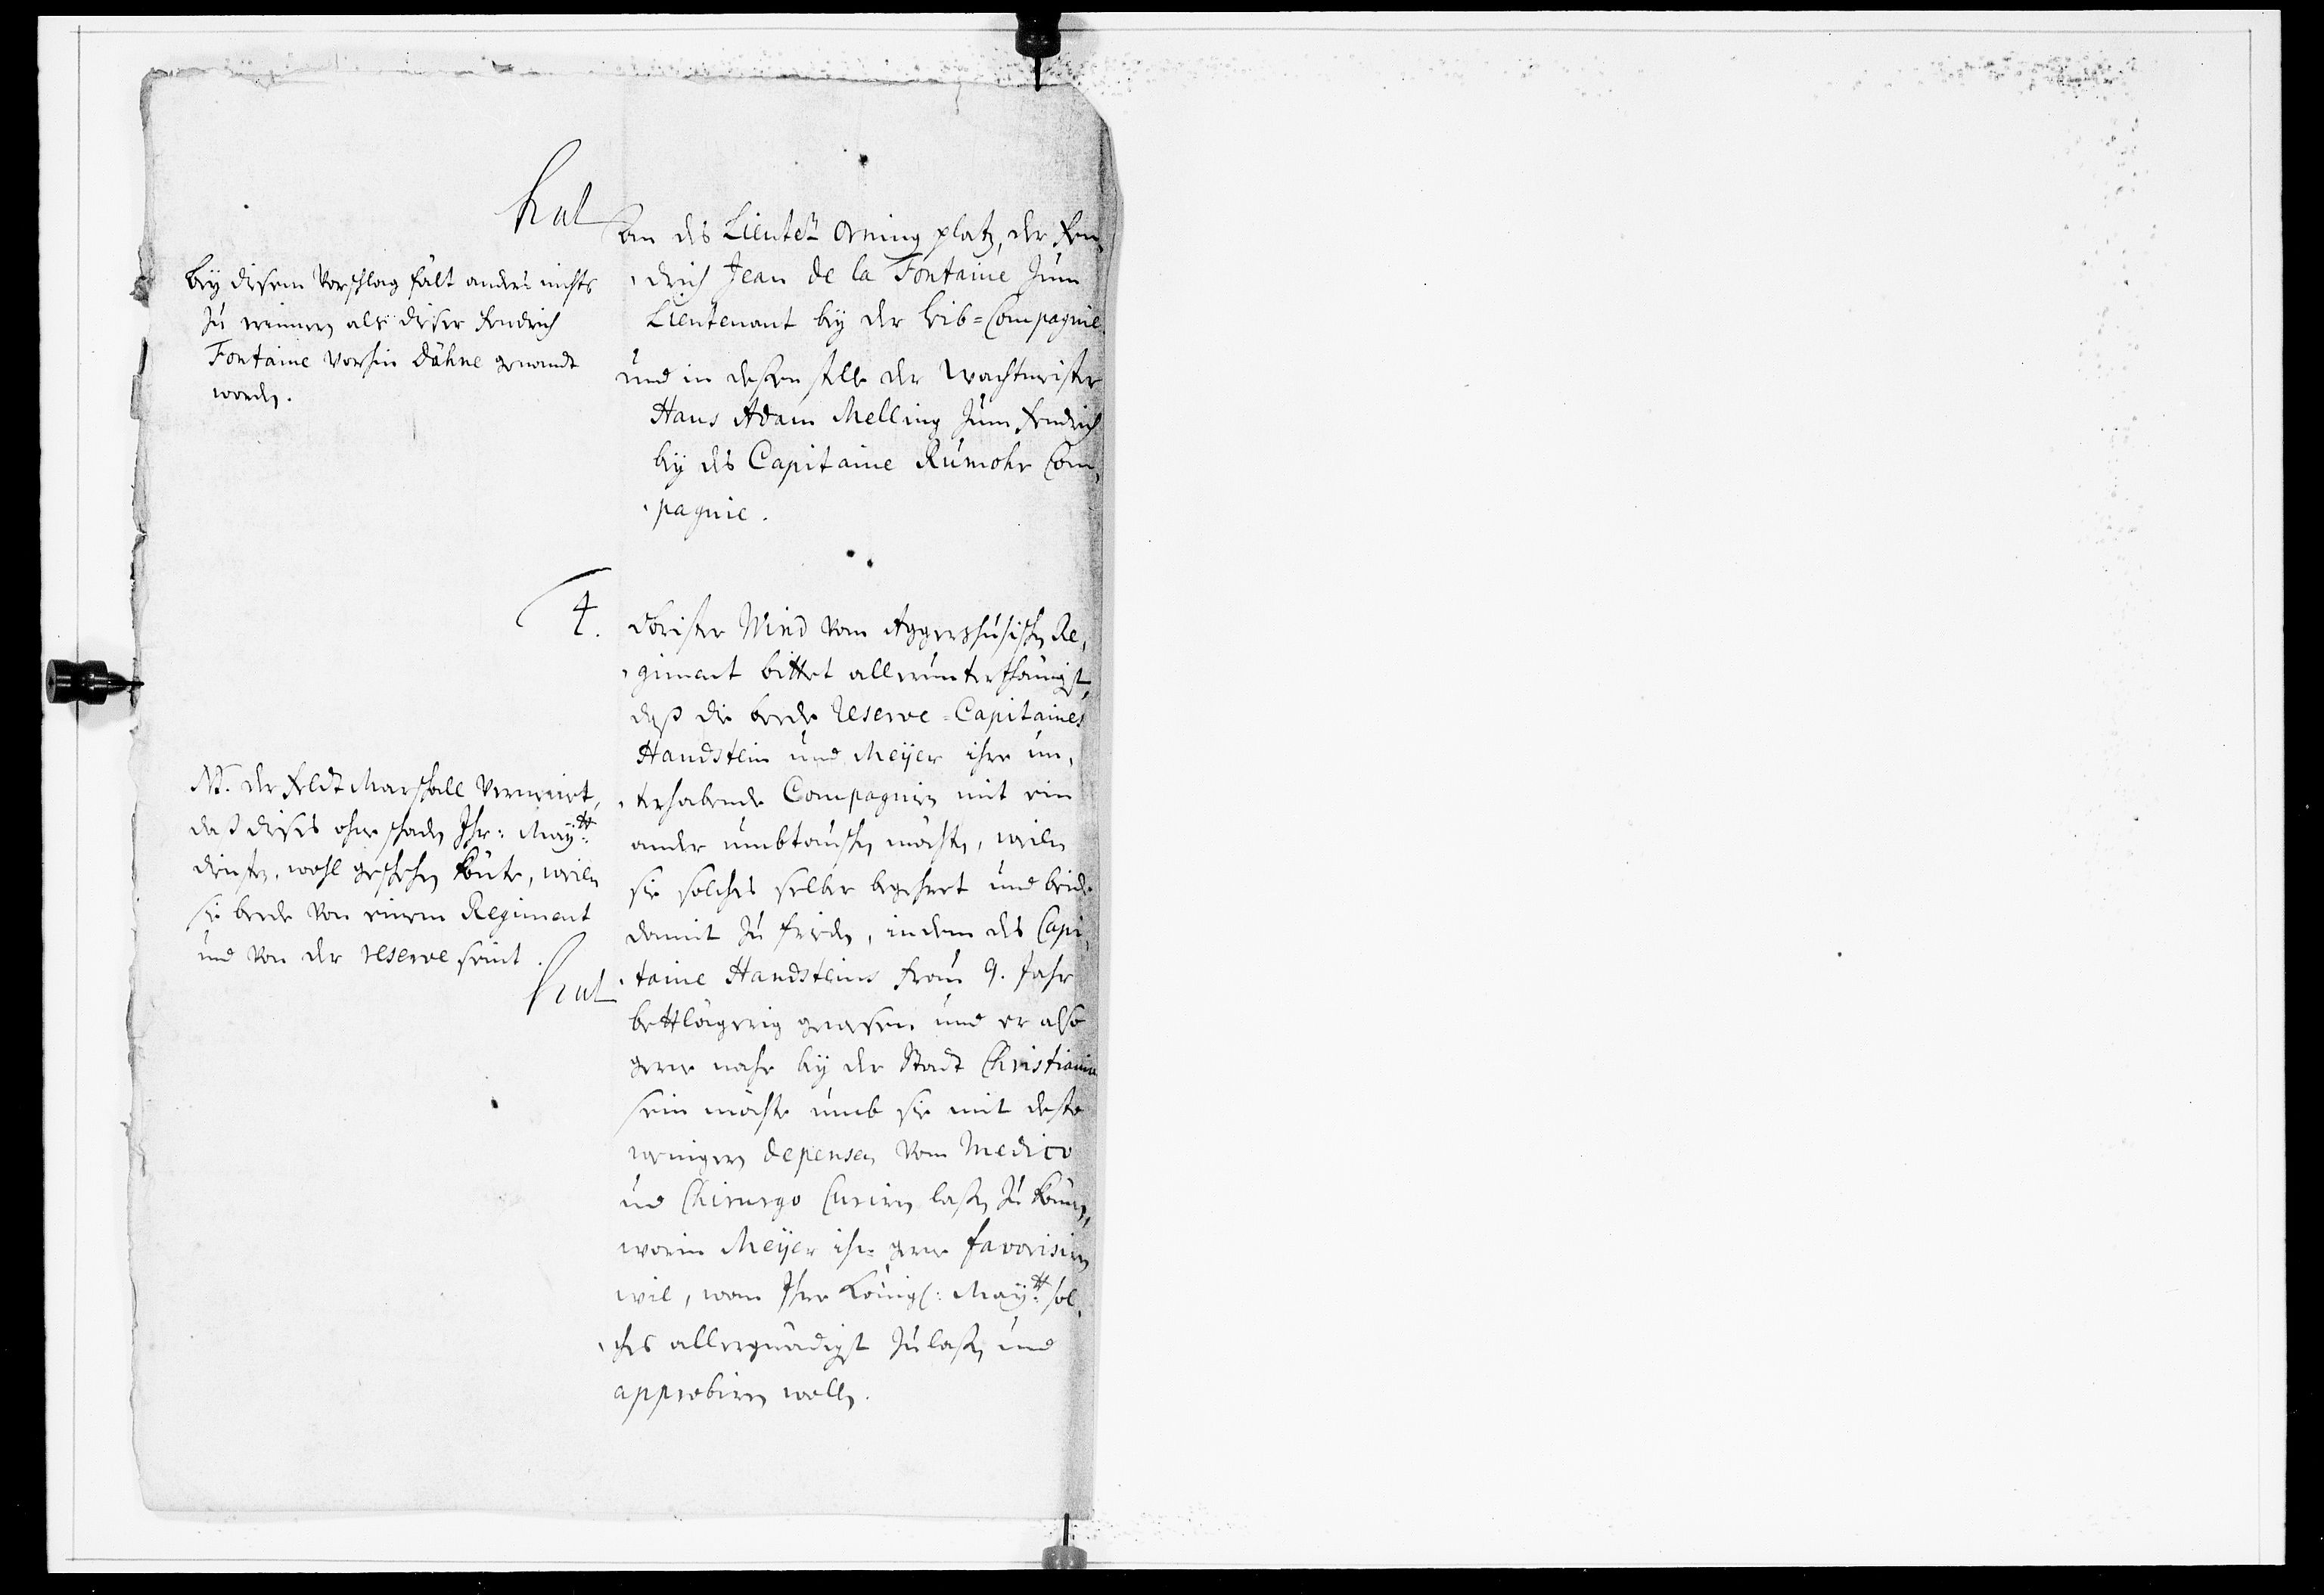 hat
an des Lieuteñ Orning platz, der Fen,
,drich Jean de la Fontaine zum
Lieutenant bey der Leib=Compagnie
und in deßen stelle der Wachtmeister
Hans Adam Melling zum Fendrich
bey des Capitaine Rumohr Com,
,pagnie.
bey diesem Vorschlag fält anders nichts
zu erinnern als dieser Fendrich
Fontaine vorhin Dähne genandt
worden.
4.
Obrister Wind vom Aggershusischen Re,
,giment bittet allerunterthänigst,
daß die beede reserve=Capitaines
Handstein und Meÿer ihre un,
,terhabende Compagnien mit ein
ander umbtauschen möchten, weilen
sie solches selber begehret und beide
damit zu frieden, indem des Capi,
,taine Handsteins Frau 9. Jahr
bettlägerig gewesen und er also
gerne nahe bey der Stadt Christiania
sein möchte umb sie mit desto
wenigern depensen vom Medico
und Chirurgo Curiren laßen zu können,
worin Meÿer ihn gerne favorisiren
wil, wan Ihre Königl: Maÿtt: sol,
,ches allergnädigst zulaßen und
approbiren wollen.
NB. der Feldt Marschall vermeint,
daß dieses ohne schaden Ihr: Maÿtt:
diensten, wohl geschehen könte, weilen
sie beede von einem Regiment
und von der reserve seint.
hat